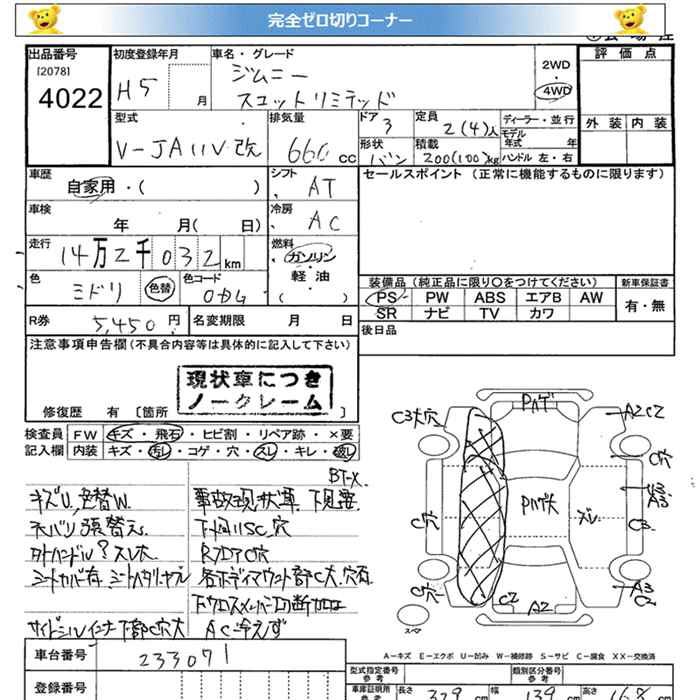 完全ゼロ切りコーナー
出品番号 初度登録年月 車名・グレード 評価点
[2078] H5 月 ジムニー 2WD
4022 スコットリミテッド 4WD
型式 排気量 ドア 定員 ディーラー・並行 外装 内装
3 2(4)人 モデル年式 年
V-JA11V改 660 cc 形状 積載
バン 200(100)kg ハンドル 左・右
車歴 シフト セールスポイント (正常に機能するものに限ります)
自家用・( ) AT
車検 冷房
年 月( 日) AC
走行 燃料
14万2千032km ガソリン
軽油
色 色替 色コード ( )
ミドリ
装備品 (純正品に限り○をつけてください) 新車保証書
PS PW ABS エアB AW 有・無
SR ナビ TV カワ
R券 5,450円 名変期限 月 日 後日品
注意事項申告欄 (不具合内容等は具体的に記入して下さい)
現状車につき
ノークレーム
修復歴 有 [箇所 ]
検査員 FW キズ・飛石・ヒビ割・リペア跡・×要
記入欄 内装 キズ・汚レ・コゲ・穴・スレ・キレ・破レ
キズU,色替W. 事故現状車 下見要
ネバリ張替え 下回リSC,穴
タトハンドル?スレ大 RフロアC穴
シートカバー有 各ボディマウント部C大,穴有
サイドシルインナー下部C穴大 AC冷えず
C3大穴 A2C2
C穴
A3
C穴 C3
ズレ
C穴 A3
C2 C2
A2
スペア
A-キズ E-エクボ U-凹み W-補修跡 S-サビ C-腐食 XX-交換済
車台番号 233071
型式指定番号 類別区分番号
参考 参考
登録番号 車庫証明用 長さ 329 cm 幅 139 cm 高さ 168 cm
参考